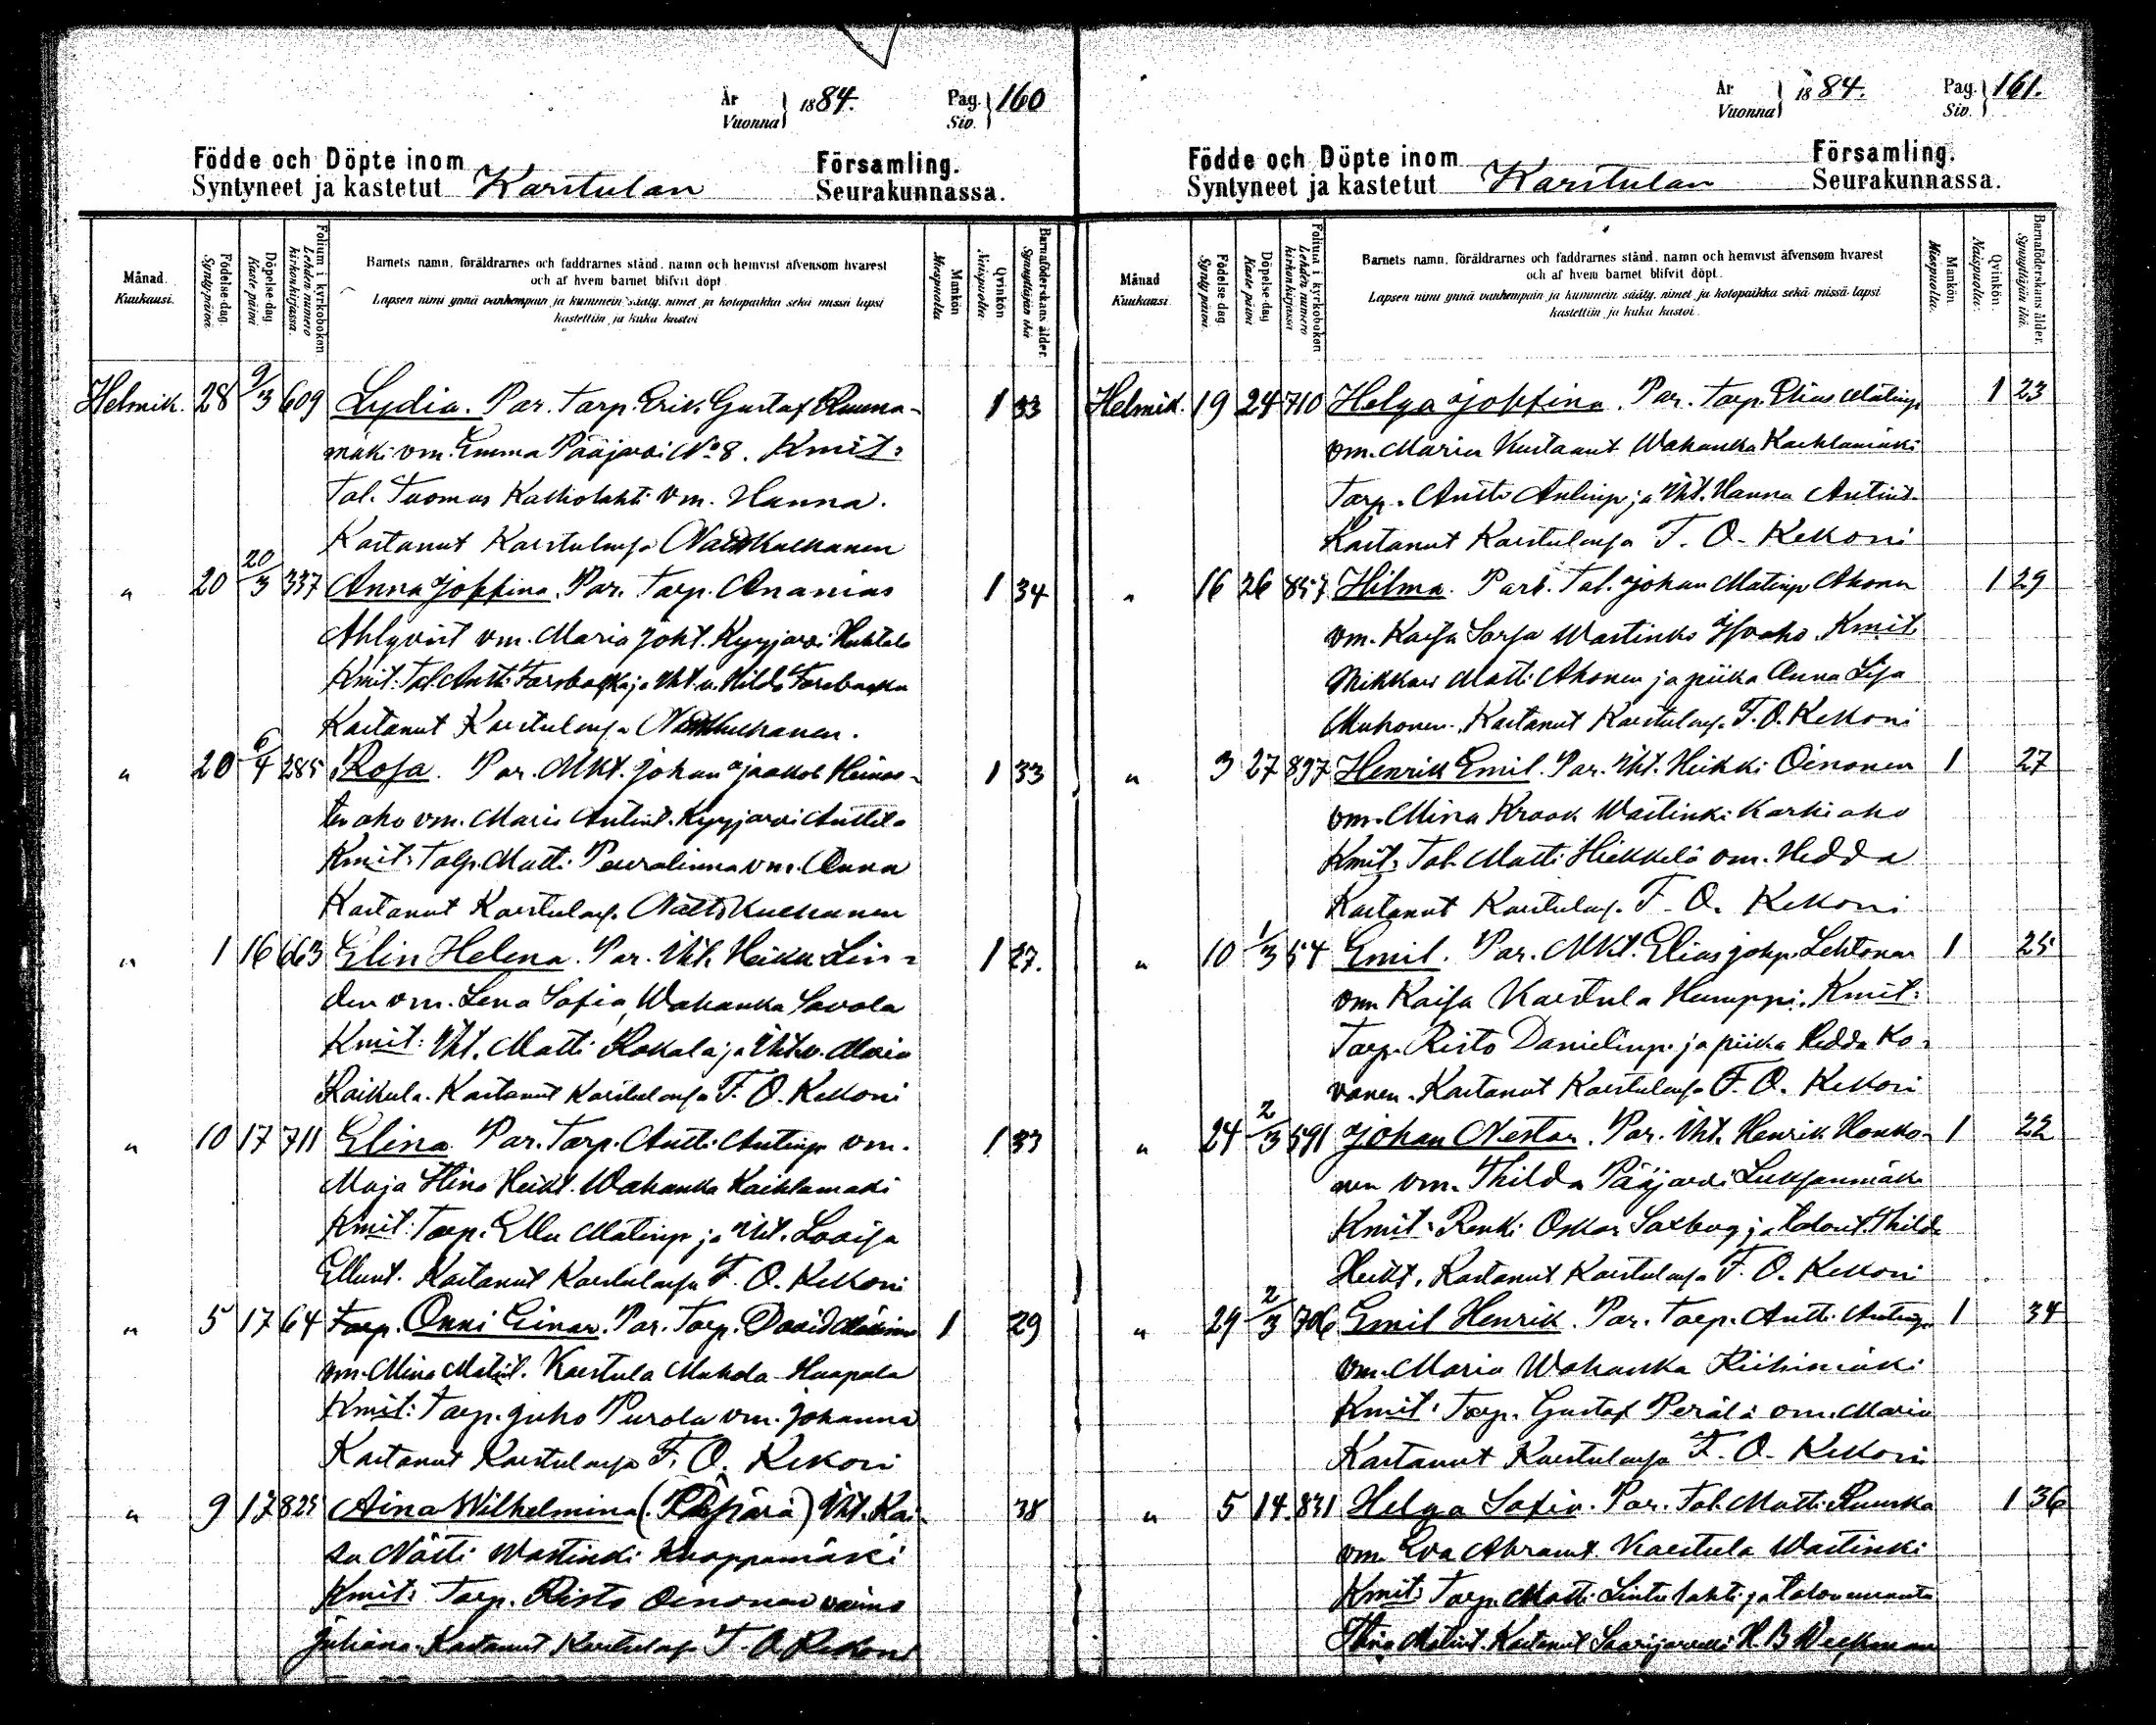 År
Vuonna } 1884. Pag.
Siv. } 160
Födde och Döpte inom
Syntyneet ja kastetut Karstulan Församling.
Seurakunnassa.
Månad.
Kuukausi.
Födelse-dag.
Synty-päivä
Döpelse dag
Kaste päivä
Folium i kyrkoboken
Lehden numero kirkonkirjassa.
Barnets namn, föräldrarnes och faddrarnes stånd, namn och hemvist äfvensom hvarest
och af hvem barnet blifvit döpt
Lapsen nimi ynnä vanhempain ja kummein sääty, nimet ja kotopaikka sekä missä lapsi
kastettiin ja kuka kastoi
Mankön
Miespuolta
Qvinkön
Naispuolta.
Barnaföderskans ålder.
Synnyttäjän ikä
Helmik. 28 9/3 609 Lydia. Par. Torp. Erik Gustaf Ruuna- 1 33
mäki vm. Emma Pääjärvi No 8. Kmit:
Tal. Tuomas Kalliolahti vm. Hanna.
Kastanut Karstulassa
" 20 20/3 337 Anna Josefina. Par. Torp. Ananias 1 34
Ahlqvist vm. Maria Joht. Kyyjärvi Huhtala
Kmit. Tal. Antti Forsbacka ja Iht. v. Hilda Forsbacka
Kastanut Karstulassa
" 20 6/4 285 Rosa. Par. Mkt. Johan Jaakob Heinos- 1 33
ten aho vm. Maria Antint. Kyyjärvi Anttila
Kmit: Talp. Matti Peuralinna vm. Anna
Kastanut Karstulassa
" 1 16 663 Elin Helena. Par. Iht. Heikki Lin- 1 27.
den vm. Lena Sofia, Wahanka Savola
Kmit: Iht. Matti Kokala ja Iht. v. Maria
Raikula. Kastanut Karstulassa F. O. Kekoni
" 10 17 711 Elina. Par. Torp. Antti Antinp. vm. 1 33
Maja Stina Heikt. Wahanka Kaihlamäki
Kmit: Torp. Ellu Matinp. ja Iht. Loviisa
Ellunt. Kastanut Karstulassa F. O. Kekoni
" 5 17 64 Torp. Onni Einar. Par. Torp. David 1 29
vm. Mina Matint. Karstula Mahala Haapala
Kmit: Torp. Juho Purola vm. Johanna
Kastanut Karstulassa F. O. Kekoni
" 9 17 825 Aina Wilhelmina (Äpärä) Iht. Kai- 38
sa Nätti Wastinki Knappamäki
Kmit: Torp. Risto Oinonen vaimo
Juliana. Kastanut Karstulassa F. O. Kekoni
År
Vuonna } 1884. Pag.
Siv. } 161.
Födde och Döpte inom
Syntyneet ja kastetut Karstulan Församling.
Seurakunnassa.
Månad
Kuukausi.
Födelse dag
Synty päivä.
Döpelse dag
Kaste päivä
Folium i kyrkoboken
Lehden numero kirkonkirjassa
Barnets namn, föräldrarnes och faddrarnes stånd, namn och hemvist äfvensom hvarest
och af hvem barnet blifvit döpt.
Lapsen nimi ynnä vanhempain ja kummein sääty, nimet ja kotopaikka sekä missä lapsi
kastettiin ja kuka kastoi.
Mankön
Miespuolta.
Qvinkön.
Naispuolta.
Barnaföderskans ålder.
Synnyttäjän ikä.
Helmik. 19 24 710 Helga Josefina. Par. Torp. Elias Matinp. 1 23
vm. Maria Kustaant. Wahanka Kaihlamäki
Torp. Antti Antinp. ja Iht. Hanna Antint.
Kastanut Karstulassa F. O. Kekoni
" 16 26 857 Hilma. Par. Tal. Johan Matinp. Ahonen 1 29
vm. Kaisa Sorsa Wastinki Isoaho. Kmit.
Mikkari Matti Ahonen ja piika Anna Lisa
Muhonen. Kastanut Karstulassa F. O. Kekoni
" 3 27 897 Henrik Emil. Par. Iht. Heikki Oinonen 1 27
vm. Mina Krook Wastinki Karhiaho
Kmit: Tal. Matti Hiekkelä vm. Hedda
Kastanut Karstulassa F. O. Kekoni
" 10 1/3 54 Emil. Par. Mkt. Elias Johp. Lehtonen 1 25
vm. Kaisa Karstula Humppi. Kmit:
Torp. Risto Danielinp. ja piika Hedda Ko-
vanen. Kastanut Karstulassa F. O. Kekoni
" 24 2/3 591 Johan Nestor. Par. Iht. Henrik Honko- 1 22
nen vm. Thilda Pääjärvi Luksanmäki
Kmit: Renki Oskar Saxberg ja talont. Thilda
Heikt. Kastanut Karstulassa F. O. Kekoni
" 29 2/3 706 Emil Henrik. Par. Torp. Antti Antinp. 1 34
vm. Maria Wahanka Riihimäki
Kmit: Torp. Gustaf Perälä vm. Maria
Kastanut Karstulassa F. O. Kekoni
" 5 14 831 Helga Sofia. Par. Tal. Matti Ruuska 1 36
vm. Eva Abramt. Karstula Wastinki
Kmit: Torp. Matti Lintulahti ja talon emäntä
Stina Matint. Kastanut Saarijärvellä K. B. Weckman